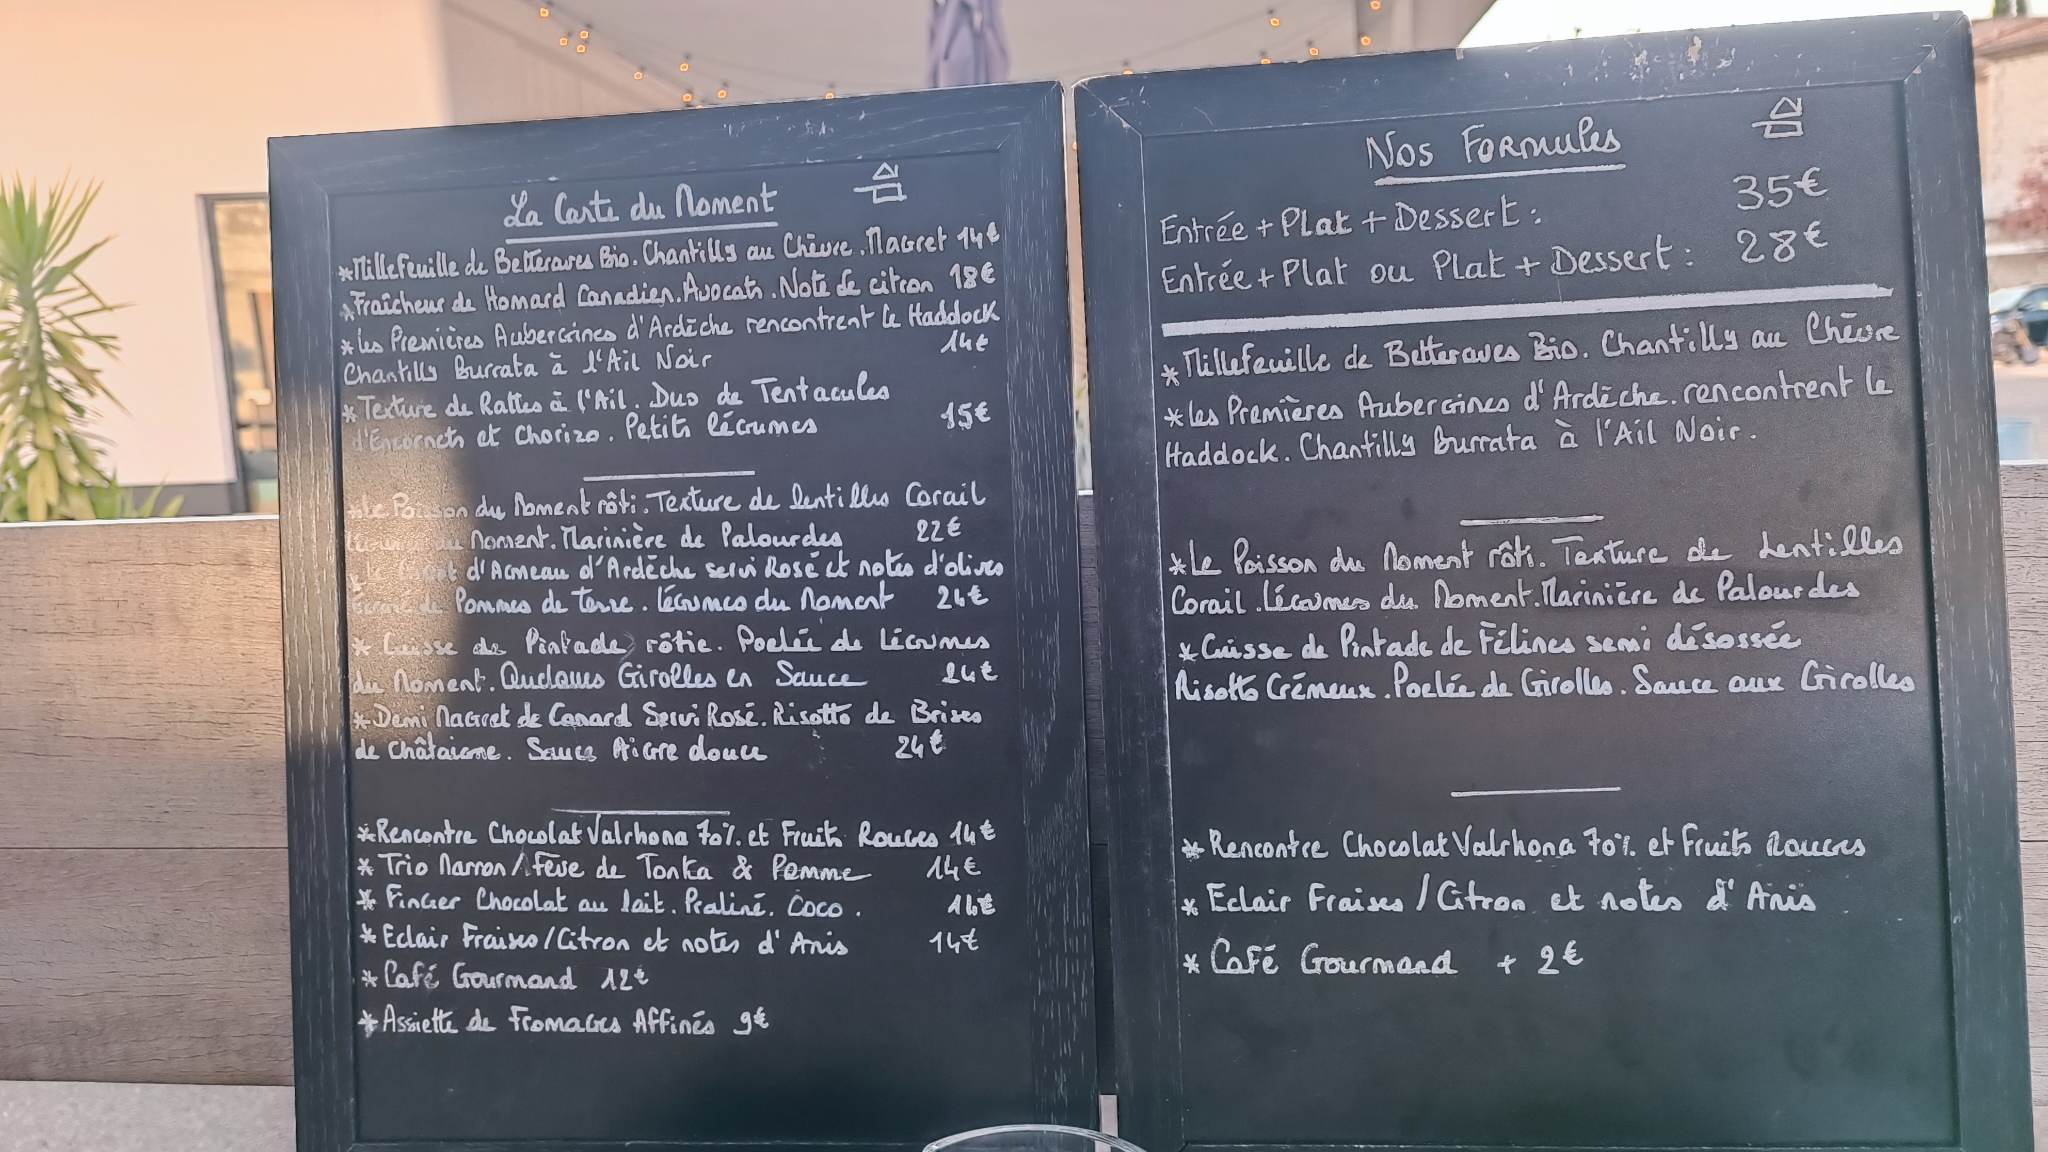 La Carte du Moment
*Millefeuille de Betteraves Bio. Chantilly au Chèvre. Magret 14€
*Fraîcheur de Homard Canadien. Avocats. Note de citron 18€
*Les Premières Aubergines d'Ardèche rencontrent le Haddock
Chantilly Burrata à l'Ail Noir 14€
*Texture de Rattes à l'Ail. Duo de Tentacules
d'Encornets et Chorizo. Petits légumes 15€
*Le Poisson du Moment rôti. Texture de lentilles Corail
Légumes du Moment. Marinière de Palourdes 22€
*Le d'Agneau d'Ardèche servi Rosé et notes d'olives
de Pommes de terre. légumes du Moment 24€
* Cuisse de Pintade rôtie. Poelée de légumes
du Moment. Quelques Girolles en Sauce 24€
*Demi Magret de Canard Servi Rosé. Risotto de Brises
de Châtaigne. Sauce Aigre douce 24€
*Rencontre Chocolat Valrhona 70% et Fruits Rouges 14€
* Trio Marron / Fève de Tonka & Pomme 14€
* Finger Chocolat au lait. Praliné. Coco. 14€
* Eclair Fraises/Citron et notes d'Anis 14€
* Café Gourmand 12€
* Assiette de Fromages Affinés 9€
Nos Formules
Entrée + Plat + Dessert : 35€
Entrée + Plat ou Plat + Dessert : 28€
*Millefeuille de Betteraves Bio. Chantilly au Chèvre
*Les Premières Aubergines d'Ardèche. rencontrent le
Haddock. Chantilly Burrata à l'Ail Noir.
*Le Poisson du Moment rôti. Texture de Lentilles
Corail. Légumes du Moment. Marinière de Palourdes
*Cuisse de Pintade de Félines semi désossée
Risotto Crémeux. Poelée de Girolles. Sauce aux Girolles
* Rencontre Chocolat Valrhona 70% et Fruits Rouges
* Eclair Fraises / Citron et notes d'Anis
* Café Gourmand + 2€